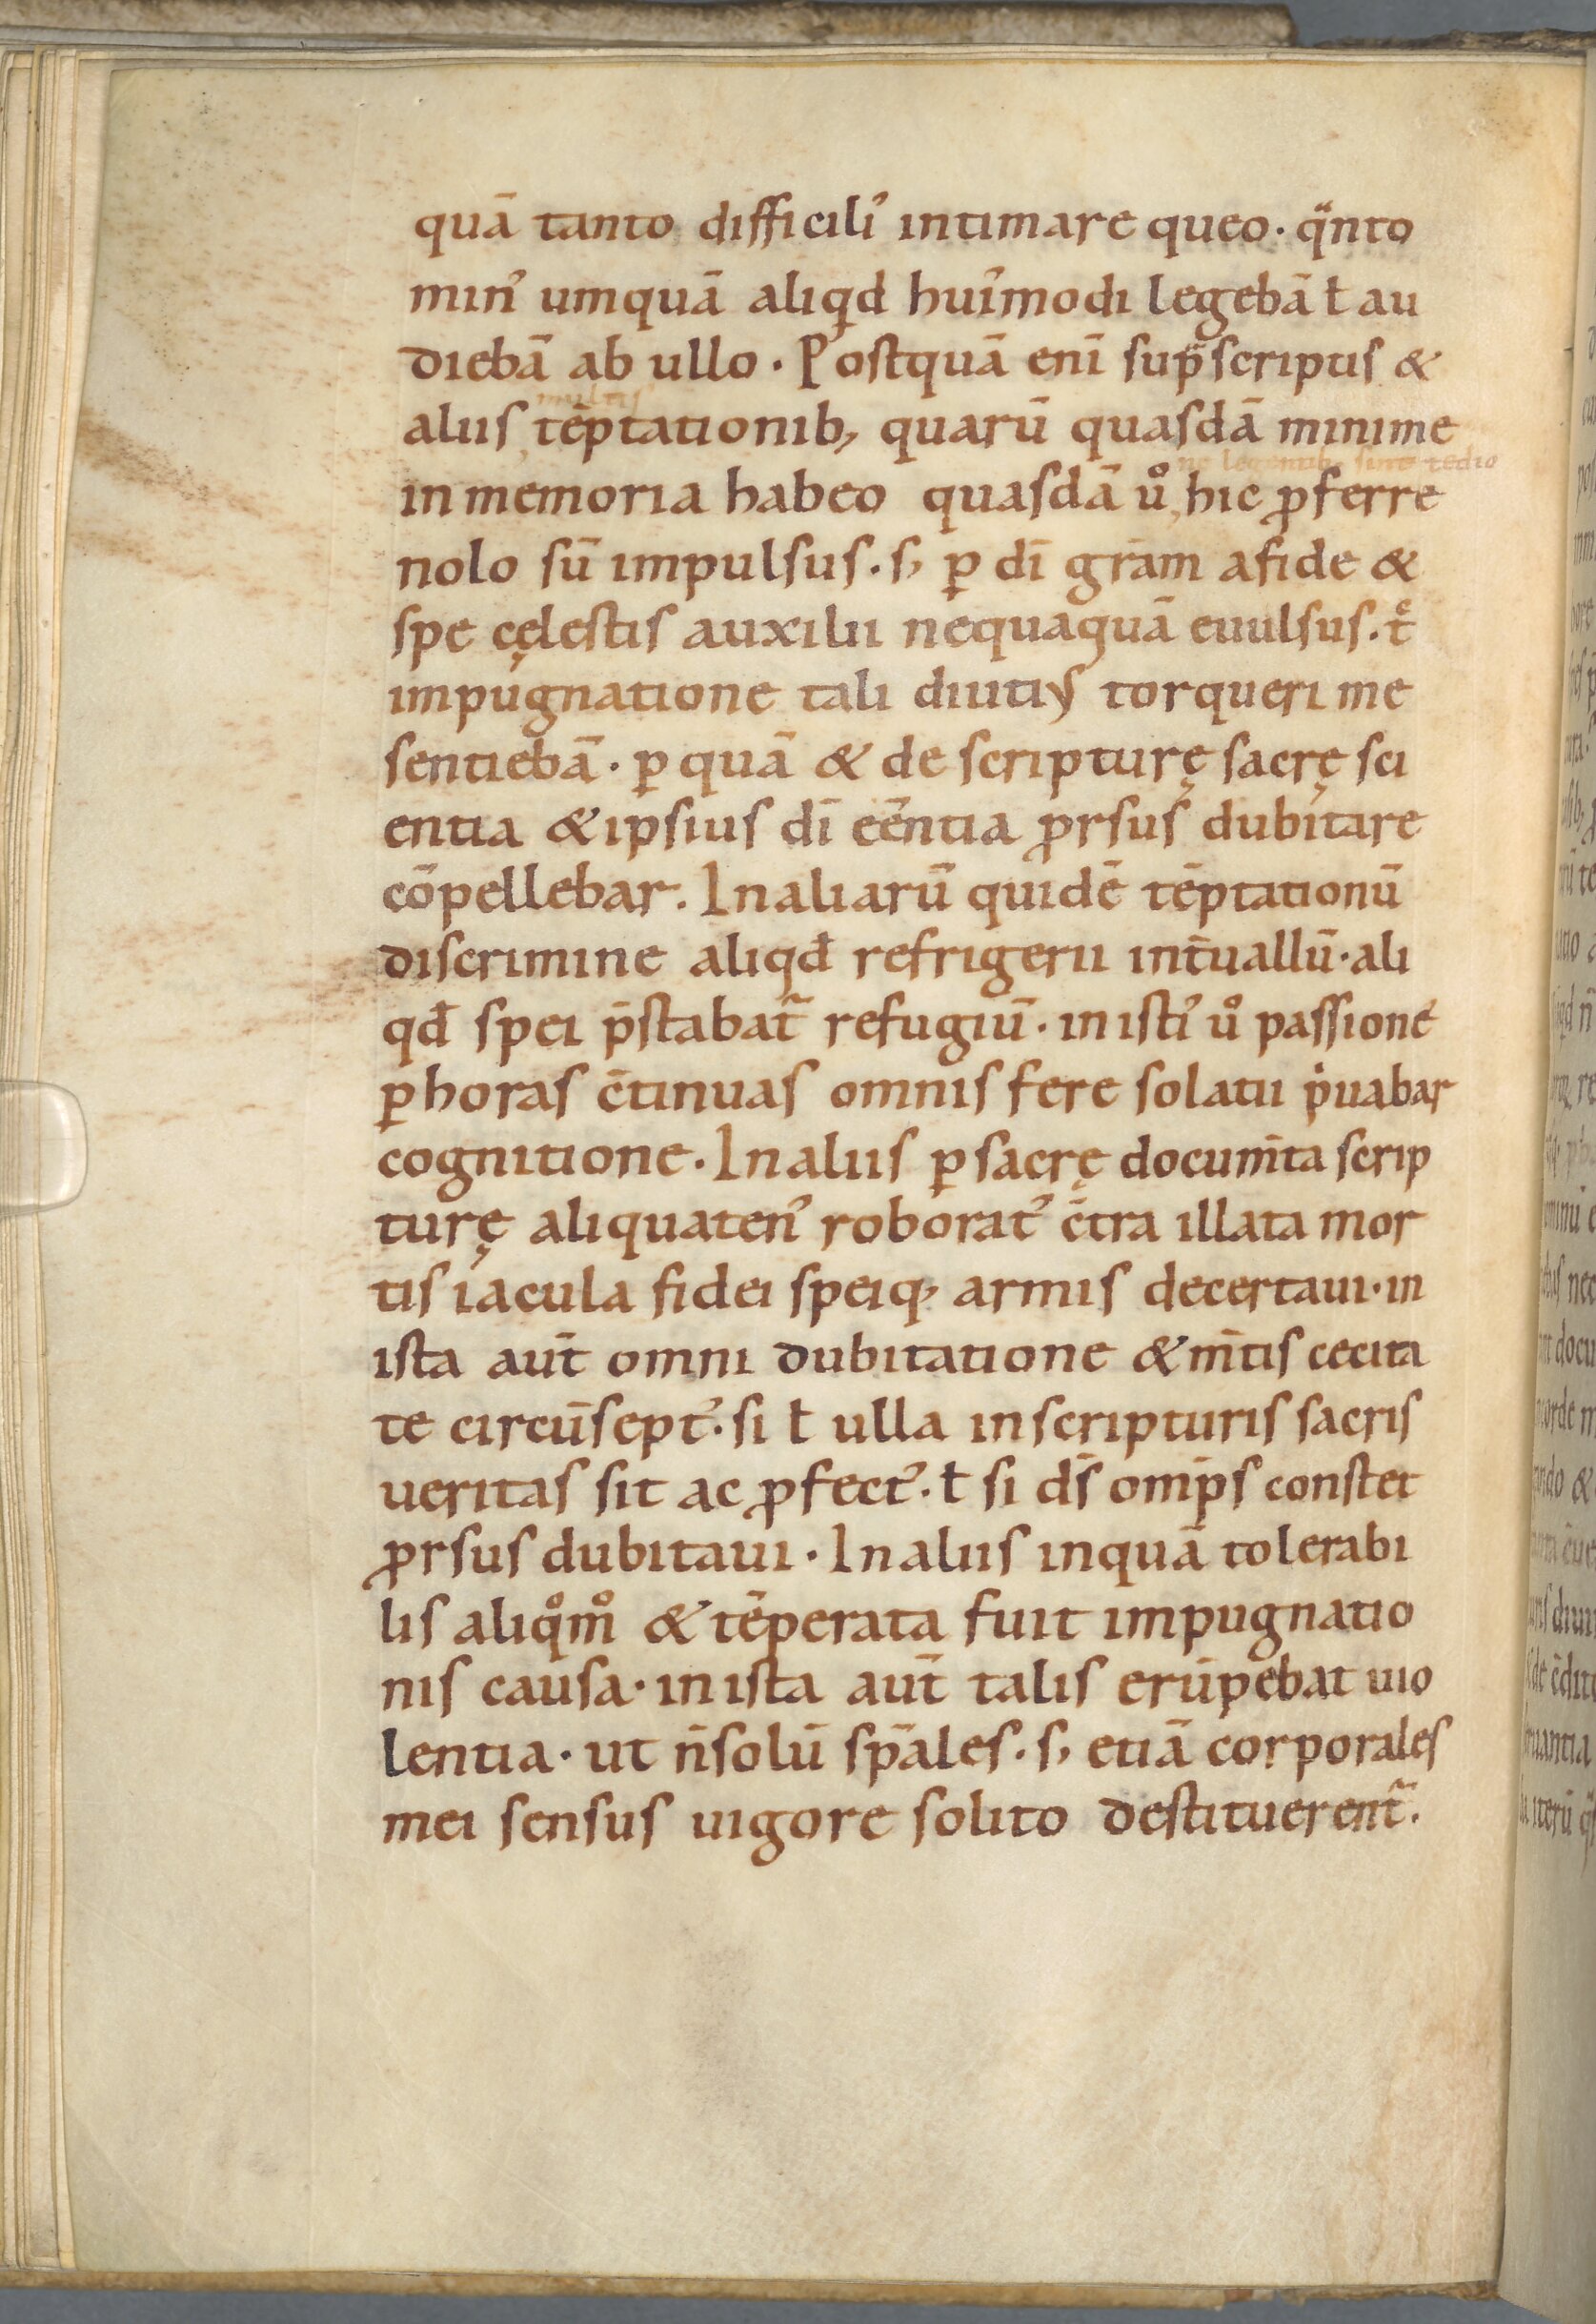 quā tanto difficili᾽ intimare queo· qͣnto
min᾽ umquā aliqͥd hui᾽modi legebā ł au
diebā ab ullo· Postquā enī supͣscriptis &
multis
aliis, tēptationib; quarū quasdā minime
ne legentib; sint tedio
in memoria habeo quasdā uͦ, hic ꝓferre
nolo sū impulsus· s; ꝑ dī grām a fide &
spe cęlestis auxilii nequaquā euulsus· tͨ
impugnatione tali diutiꝰ torqueri me
sentiebā· ꝑ quā & de scripturę sacrę sci
entia & ipsius dī eēntia ꝓrsus dubitare
cōpellebar. In aliarū quidē tēptationū
discrimine aliqđ refrigerii int̄uallū· ali
qđ spei p̄stabat᷑ refugiū· in isti᾽ uͦ passione
ꝑ horas c̄tinuas omnis fere solatii pͥuabar
cognitione· In aliis ꝑ sacrę docum̄ta scrip
turę aliquaten᾽ roborat᾽ c̄tra illata mor
tis iacula fidei speiq; armis decertaui· in
ista aut̄ omni dubitatione & m̄tis cecita
te circūsept᾽· si ł ulla in scripturis sacris
ueritas sit ac ꝓfect᾽· ł si dс̄ omp̄s constet
ꝓrsus dubitaui· In aliis inquā tolerabi
lis aliqͦmͦ & tēperata fuit impugnatio
nis causa· in ista aut̄ talis erūpebat uio
lentia· ut n̄ solū sp̄ales· s; etiā corporales
mei sensus uigore solito destituerent᷑.